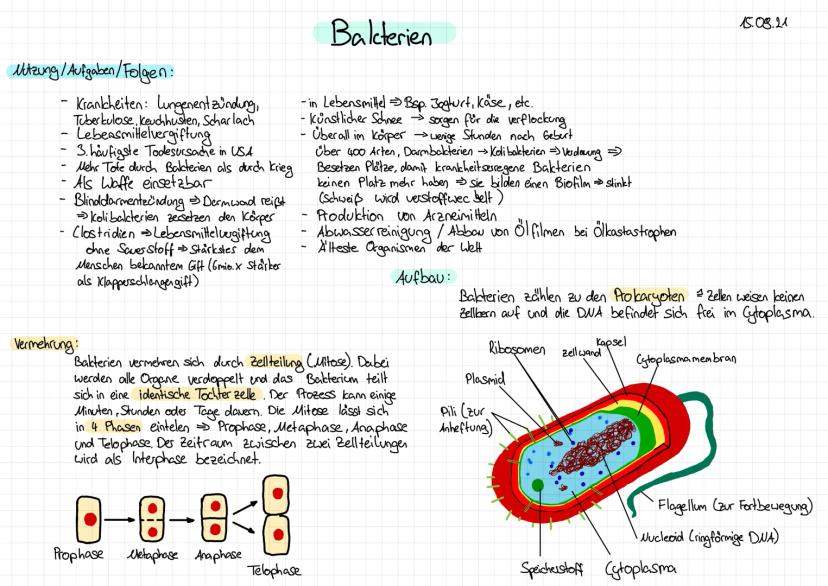 Bakterien
15.09.21
Nutzung/Aufgaben/Folgen:
- Krankheiten: Lungenentzündung,
Tuberkulose, Keuchhusten, Scharlach
- Lebensmittelvergiftung
- 3. häufigste Todesursache in USA
- Mehr Tote durch Bakterien als durch Krieg
- Als Waffe einsetzbar
- Blinddarmentzündung ⇒ Darmwand reißt
⇒ Kolibakterien zersetzen den Körper
- Clostridien ⇒ Lebensmittelvergiftung
ohne Sauerstoff ⇒ Stärkstes dem
Menschen bekanntem Gift (6mio.x stärker
als Klapperschlangengift)
- in Lebensmittel ⇒ Bsp. Joghurt, Käse, etc.
- Künstlicher Schnee → sorgen für die verflockung
- Überall im Körper → wenige Stunden nach Geburt
Über 400 Arten, Darmbakterien → Kolibakterien ⇒ Verdauung ⇒
Besetzen Plätze, damit krankheitserregene Bakterien
keinen Platz mehr haben ⇒ sie bilden einen Biofilm ⇒ stinkt
(Schweiß wird verstoffwechselt)
- Produktion von Arzneimitteln
- Abwasserreinigung / Abbau von Ölfilmen bei Ölkastastrophen
- Älteste Organismen der Welt
Aufbau:
Bakterien zählen zu den Prokaryoten ⇒ Zellen weisen keinen
Zellkern auf und die DNA befindet sich frei im Cytoplasma.
Vermehrung:
Bakterien vermehren sich durch Zellteilung (Mitose). Dabei
werden alle Organe verdoppelt und das Bakterium teilt
sich in eine identische Tochterzelle. Der Prozess kann einige
Minuten, Stunden oder Tage dauern. Die Mitose lässt sich
in 4 Phasen einteilen ⇒ Prophase, Metaphase, Anaphase
und Telophase. Der Zeitraum zwischen zwei Zellteilungen
wird als Interphase bezeichnet.
Prophase
Metaphase
Anaphase
Telophase
Ribosomen
Zellwand
Kapsel
Cytoplasmamembran
Plasmid
Pili (zur
Anheftung)
Flagellum (zur Fortbewegung)
Nucleoid (ringförmige DNA)
Speicherstoff
Cytoplasma